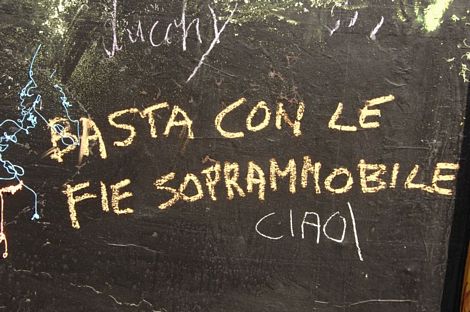 BASTA CON LE
FIE SOPRAMMOBILE
CIAO